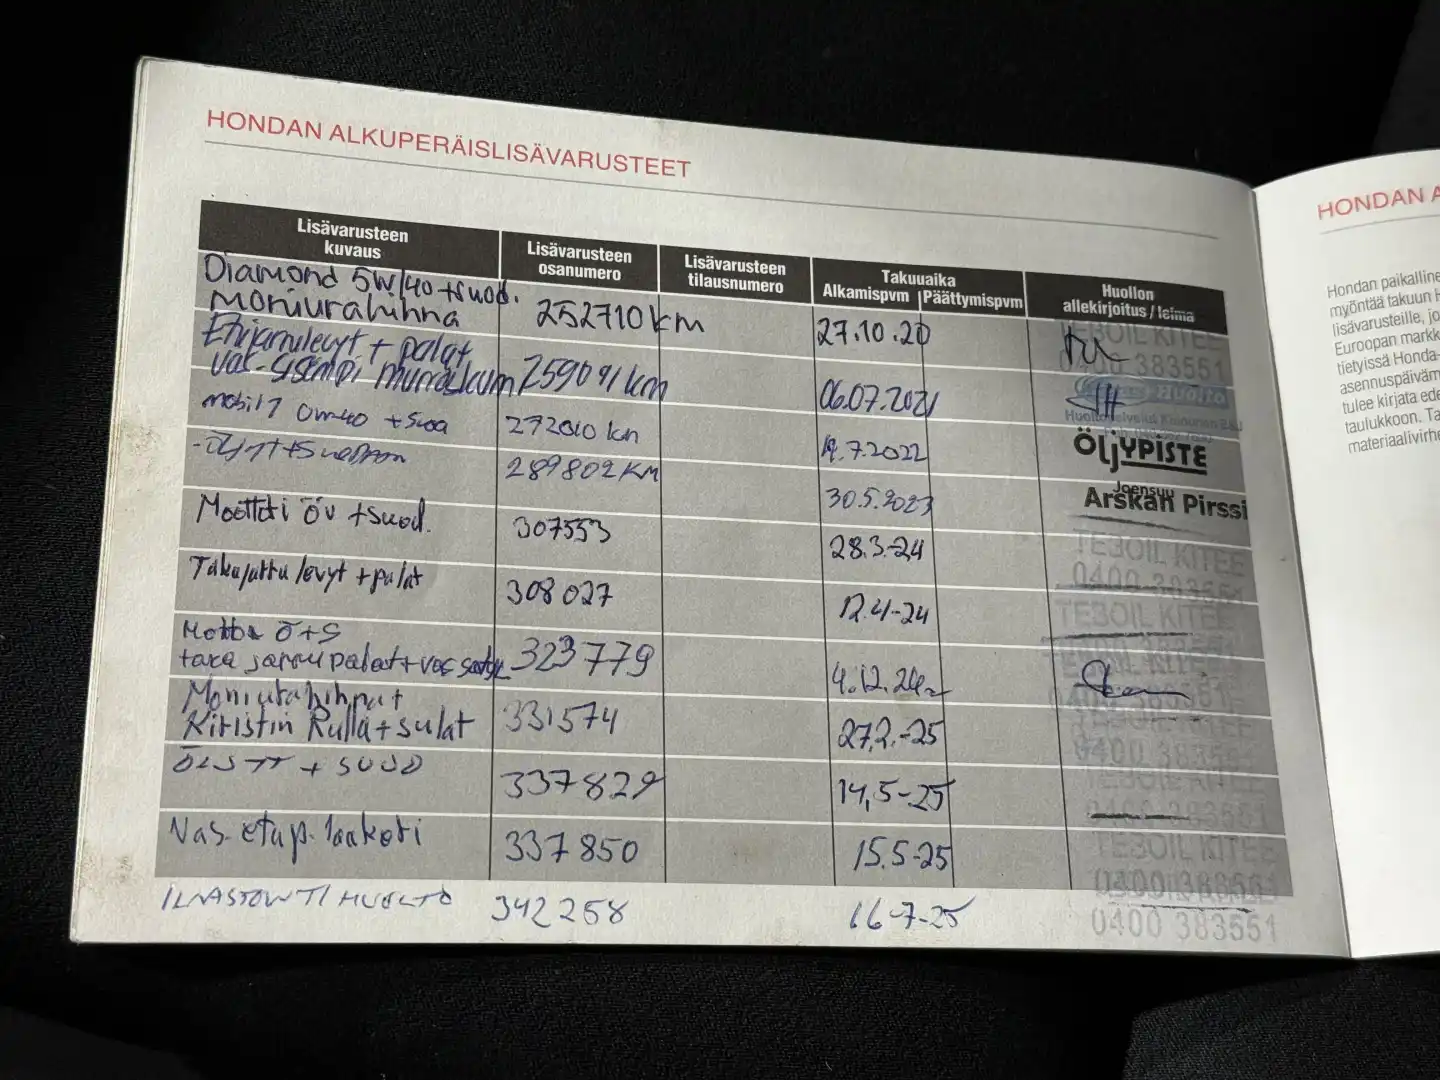 HONDAN ALKUPERÄISLISÄVARUSTEET
Lisävarusteen kuvaus
Lisävarusteen osanumero
Lisävarusteen tilausnumero
Takuuaika
Alkamispvm Päättymispvm
Huollon allekirjoitus / leima
Diamond 5W/40 + suod.
moniurahihna 252710 km 27.10.20
TEBOIL KITEE
0400 383551
Etujarrulevyt + palat
vas. sisempi murroskumi 259091 km 06.07.2021
Huolto
mobil 1 0w40 + suod 272010 km 19.7.2022
ÖLJYPISTE
Joensuu
289802 KM 30.5.2023
Arskan Pirssi
Moottori öv + suod. 307553 28.3-24
TEBOIL KITEE
0400 383551
Takajarru levyt + palat 308027 12.4-24
TEBOIL KITEE
Moottori Ö+S
taka jarrupalat + vas 323779 4.12.24
Moniurahihnat
Kiristin Rulla + sulat 331574 27.2.-25
0400 383551
+ SUOD 337829 14.5-25
Vas. etup. laakeri 337850 15.5-25
TEBOIL KITEE
ILMASTOINTI HUOLTO 342258 16-7-25
0400 383551
HONDAN A
Hondan paikalline
myöntää takuun H
lisävarusteille, jo
Euroopan markk
tietyissä Honda-
asennuspäiväm
tulee kirjata ede
taulukkoon. Ta
materiaalivirhe